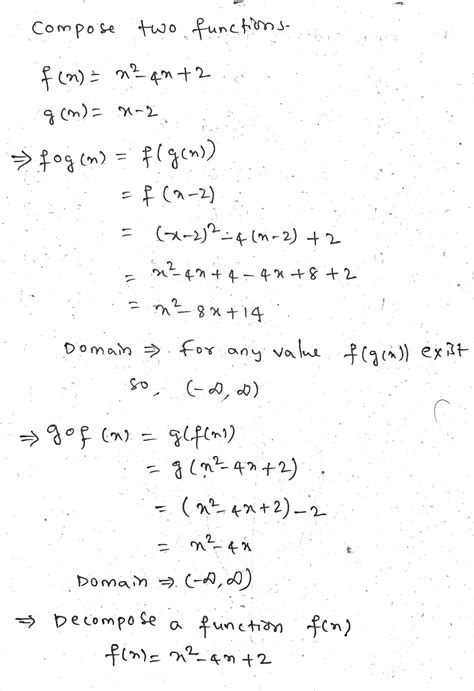 Compose two functions.
f(x) = x²-4x+2
g(x) = x-2
⇒ fog(x) = f(g(x))
= f (x-2)
= (x-2)²-4(x-2)+2
= x²-4x+4-4x+8+2
= x²-8x+14
Domain ⇒ for any value f(g(x)) exist
so, (-∞,∞)
⇒ gof (x) = g(f(x))
= g(x²-4x+2)
= (x²-4x+2)-2
= x²-4x
Domain ⇒ (-∞,∞)
⇒ Decompose a function f(x)
f(x)= x²-4x+2